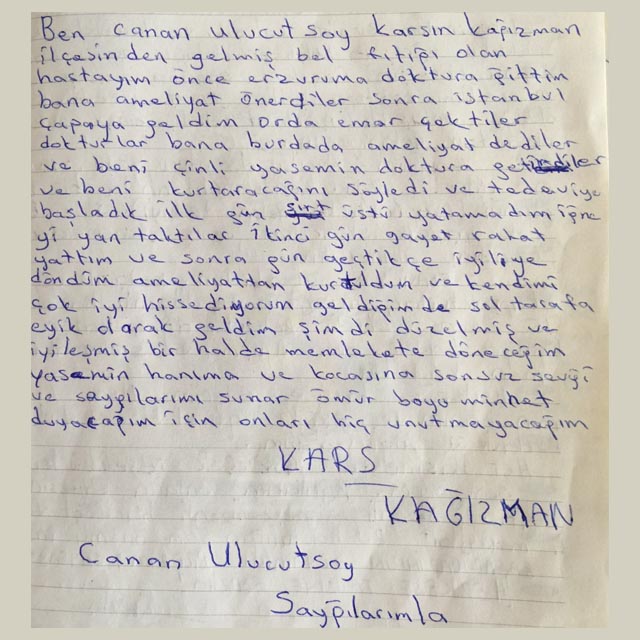 Ben Canan Ulucutsoy Karsın Kağızman
ilçesinden gelmiş bel fıtığı olan
hastayım önce erzuruma doktura gittim
bana ameliyat önerdiler sonra istanbul
çapaya geldim orda emar çektiler
dokturlar bana burdada ameliyat dediler
ve beni çinli yasemin doktura getirdiler
ve beni kurtaracağını söyledi ve tedaviye
başladık ilk gün sırt üstü yatamadım iğne
yi yan taktılar ikinci gün gayet rahat
yattım ve sonra gün geçtikçe iyiliye
döndüm ameliyattan kurtuldum ve kendimi
çok iyi hissediyorum geldiğimde sol tarafa
eyik olarak geldim şimdi düzelmiş ve
iyileşmiş bir halde memlekete döneceğim
yasemin hanıma ve kocasına sonsuz sevgi
ve saygılarımı sunar ömür boyo minnet
duyacağım için onları hiç unutmayacağım
KARS
KAĞIZMAN
Canan Ulucutsoy
Saygılarımla